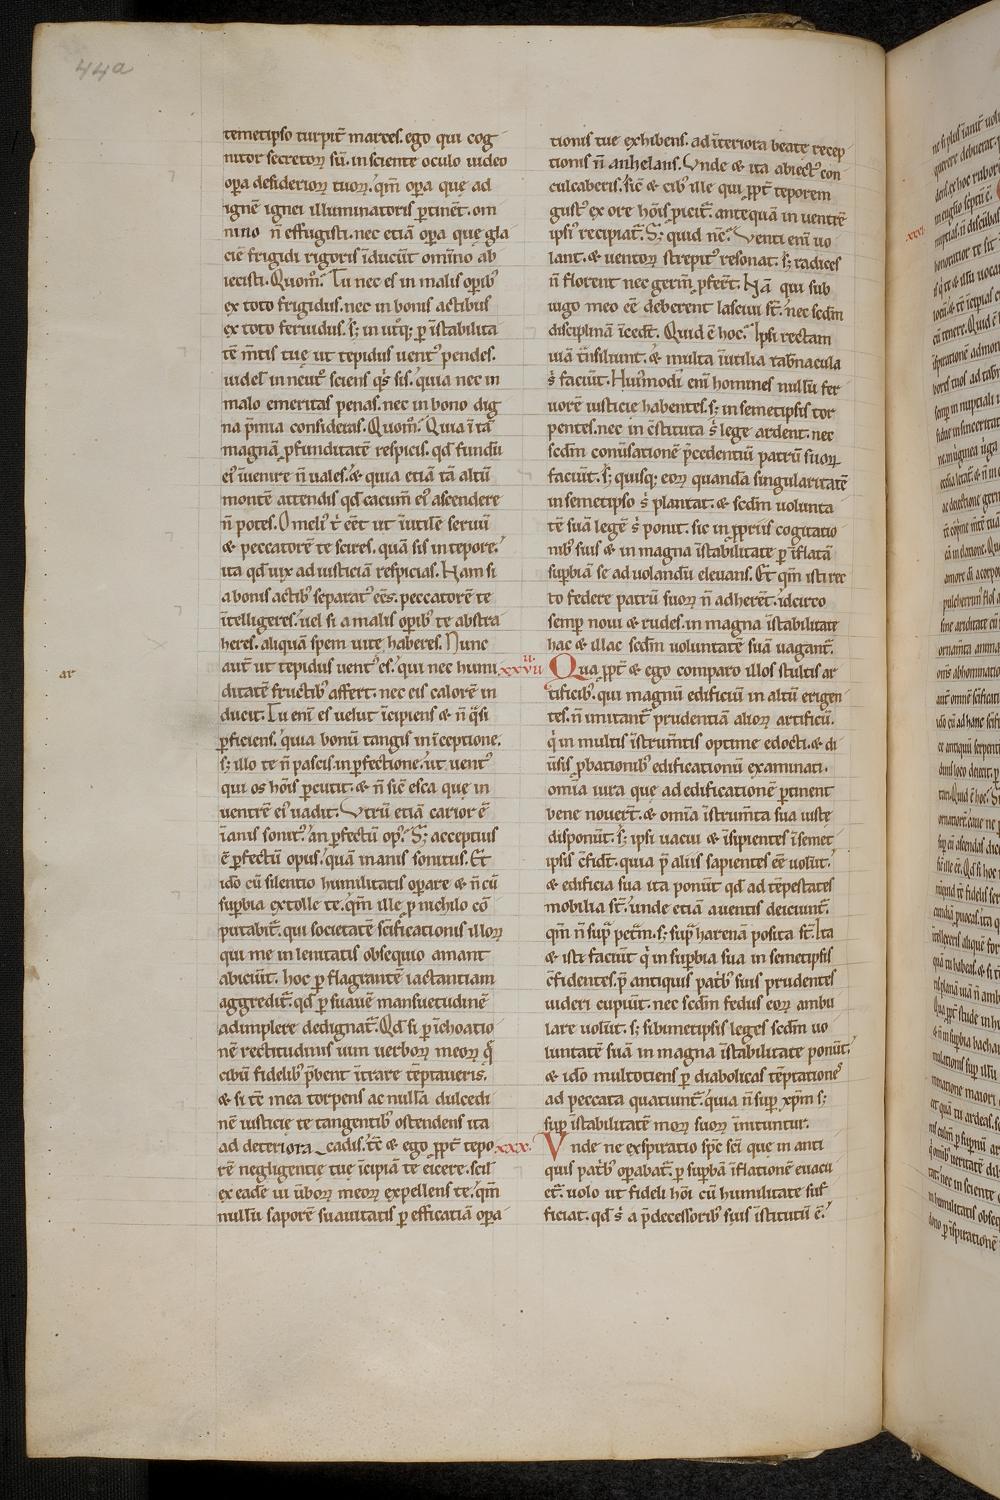 44a
temetipso turpit̃ marces. ego qui cog
nitor secretoꝝ sū. insciente oculo uideo
oꝑa desiderioꝝ tuoꝝ. qm̄ oꝑa que ad
ignē ignei illuminatoris ꝑtinēt. om
nino n̄ effugisti. nec etiā oꝑa que gla
ciē frigidi rigoris īducūt om̄ino ab
iecisti. Quom̊. Tu nec es in malis opib᷒
ex toto frigidus. nec in bonis actibus
ex toto feruidus. sꝫ in utq̃ꝫ ꝑ īstabilita
tē m̄tis tue ut tepidus uent᷒ pendes.
uidel in neut᷒ sciens qͥs sis. quia nec in
malo emeritas penas. nec in bono dig
na p̄mia consideras. Quom̊. Quia ī tā
magnā ꝓfunditatē respicis. qd̄ fundū
ei᷒ īuenire n̄ uales. & quia etiā tā altū
montē attendis qd̄ cacum̄ ei᷒ ascendere
n̄ potes. O meli᷒ tͥ eēt ut īutilē seruū
& peccatorē te scires. quā sis in tepore.
ita qd̄ uix ad iusticiā respicias. Nam si
a bonis actib᷒ separat᷒ eēs. peccatorē te
ītelligeres. uel si a malis opib᷒ te abstra
heres. aliquā spem uite haberes. Nunc
aut̄ ut tepidus uent᷒ es. qui nec humi
ditatē fructib᷒ affert. nec eis calorē in
ducit. Tu eni es uelut īcipiens & n̄ qͣsi
ꝑficiens. quia bonū tangis in īceptione.
sꝫ illo te n̄ pascis in ꝑfectione. ut uent᷒
qui os hōis ꝑcutit. & n̄ sic̄ esca que in
uentrē ei᷒ uadit. Vtrū etiā carior ē
īanis sonit᷒. an ꝑfectū op᷒. Sꝫ acceptius
ē ꝑfectū opus. quā inanis sonitus. Et
idō cū silentio humilitatis opare & n̄ cū
supbia extolle te. qm̄ ille ꝑ nichilo cō
putabit̃. qui societatē scificationis illoꝝ
qui me in lenitatis obsequio amant
abiciūt. hoc ꝑ flagrantē iactantiam
aggredit̃. qd̄ ꝑ suauē mansuetudinē
adimplere dedignat̃. Qd̄ si ꝑ īchoatio
nē rectitudinis uim uerboꝝ meoꝝ qͣ
cibū fidelib᷒ p̄bent ītrare tēptaueris.
& si tē mea torpens ac nulla dulcedi
nē iusticie te tangentib᷒ ostendens ita
ad deteriora cadis. tē & ego ꝓpt̃ tepo
rē negligentie tue īcipiā te eicere. scil
ex eadē ui ūboꝝ meoꝝ expellens te. qm̄
nullū saporē suauitatis ꝑ efficatiā oꝑa
ar
tionis tue exhibens. ad īteriora beate recep
tionis n̄ anhelans. Vnde & ita abiect᷒ con
culcaberis. sic̄ & cib᷒ ille qui ꝓpt̃ teporem
gust᷒ ex ore hōis ꝓicit̃. antequā in uentrē
ipsi᷒ recipiat̃. Sꝫ quid nē. Venti eni uo
lant. & uentoꝝ strepit᷒ resonat. sꝫ radices
n̄ florent nec germ̄ ꝓferēt. Nā qui sub
iugo meo eē deberent lasciui st̄. nec scdm
disciplinā īcedt̄. Quid ē hoc. Ipsi rectam
uiā tͣnsiliunt. & multa īutilia tabnacula
sͥ faciūt. Hui᷒modi eni homines nullū fer
uorē iusticie habentes. sꝫ in semetipsis tor
pentes. nec in cstituta sͥ lege ardent. nec
scdm conūsationē p̄cedentiū patrū suoꝝ
faciūt. sꝫ quisqꝫ eoꝝ quandā singularitatē
in semetipso sͥ plantat. & scdm uolunta
tē suā legē sͥ ponit. sic in ꝓpriis cogitatio
nib᷒ suis & in magna īstabilitate ꝑ īflatā
supbiā se ad uolandū eleuans. Et qm̄ isti rec
to federe patrū suoꝝ n̄ adherēt. idcirco
semp noui & rudes. in magna īstabilitate
hac & illac scdm uoluntatē suā uagant̃.
xxviii
Qua ꝓpt̃ & ego comparo illos stultis ar
tificib᷒. qui magnū edificiū in altū erigen
tes. n̄ imitant̃ prudentiā alioꝝ artificū.
qͥ in multis īstrum̄tis optime edocti. & di
ūsis ꝓbationib᷒ edificationū examinati.
om̄ia iura que ad edificationē ꝑtinent
bene nouert̄. & om̄ia īstrum̄ta sua iuste
disponūt. sꝫ ipsi uacui & īsipientes īsemet
ipsis cfidt̄. quia p̄ aliis sapientes eē uolūt.
& edificia sua ita ponūt qd̄ ad tēpestates
mobilia st̄. unde etiā auentis deiciunt̃.
qm̄ n̄ supͣ petm̄. sꝫ supͣ harenā posita st̄. Ita
& isti faciūt qͥ in supbia sua in semetipsis
cfidentes. p̄ antiquis patb᷒ suis prudentes
uideri cupiūt. nec scdm fedus eoꝝ ambu
lare uolūt. sꝫ sibimetipsis leges scdm uo
luntatē suā in magna īstabilitate ponūt.
& idō multotiens ꝑ diabolicas tēptatione᷒
ad peccata quatiunt̃. quia n̄ sup xp̄m sꝫ
sup īstabilitatē moꝝ suoꝝ inituntur.
xxx.
Vnde ne exspiratio sp̄c sci que in anti
quis patb᷒ opabat̃. ꝑ supbā īflationē euacu
et̃. uolo ut fideli hōi cū humilitate suf
ficiat. qd̄ sͥ a p̄decessorib᷒ suis īstitutū ē.
xxxi.